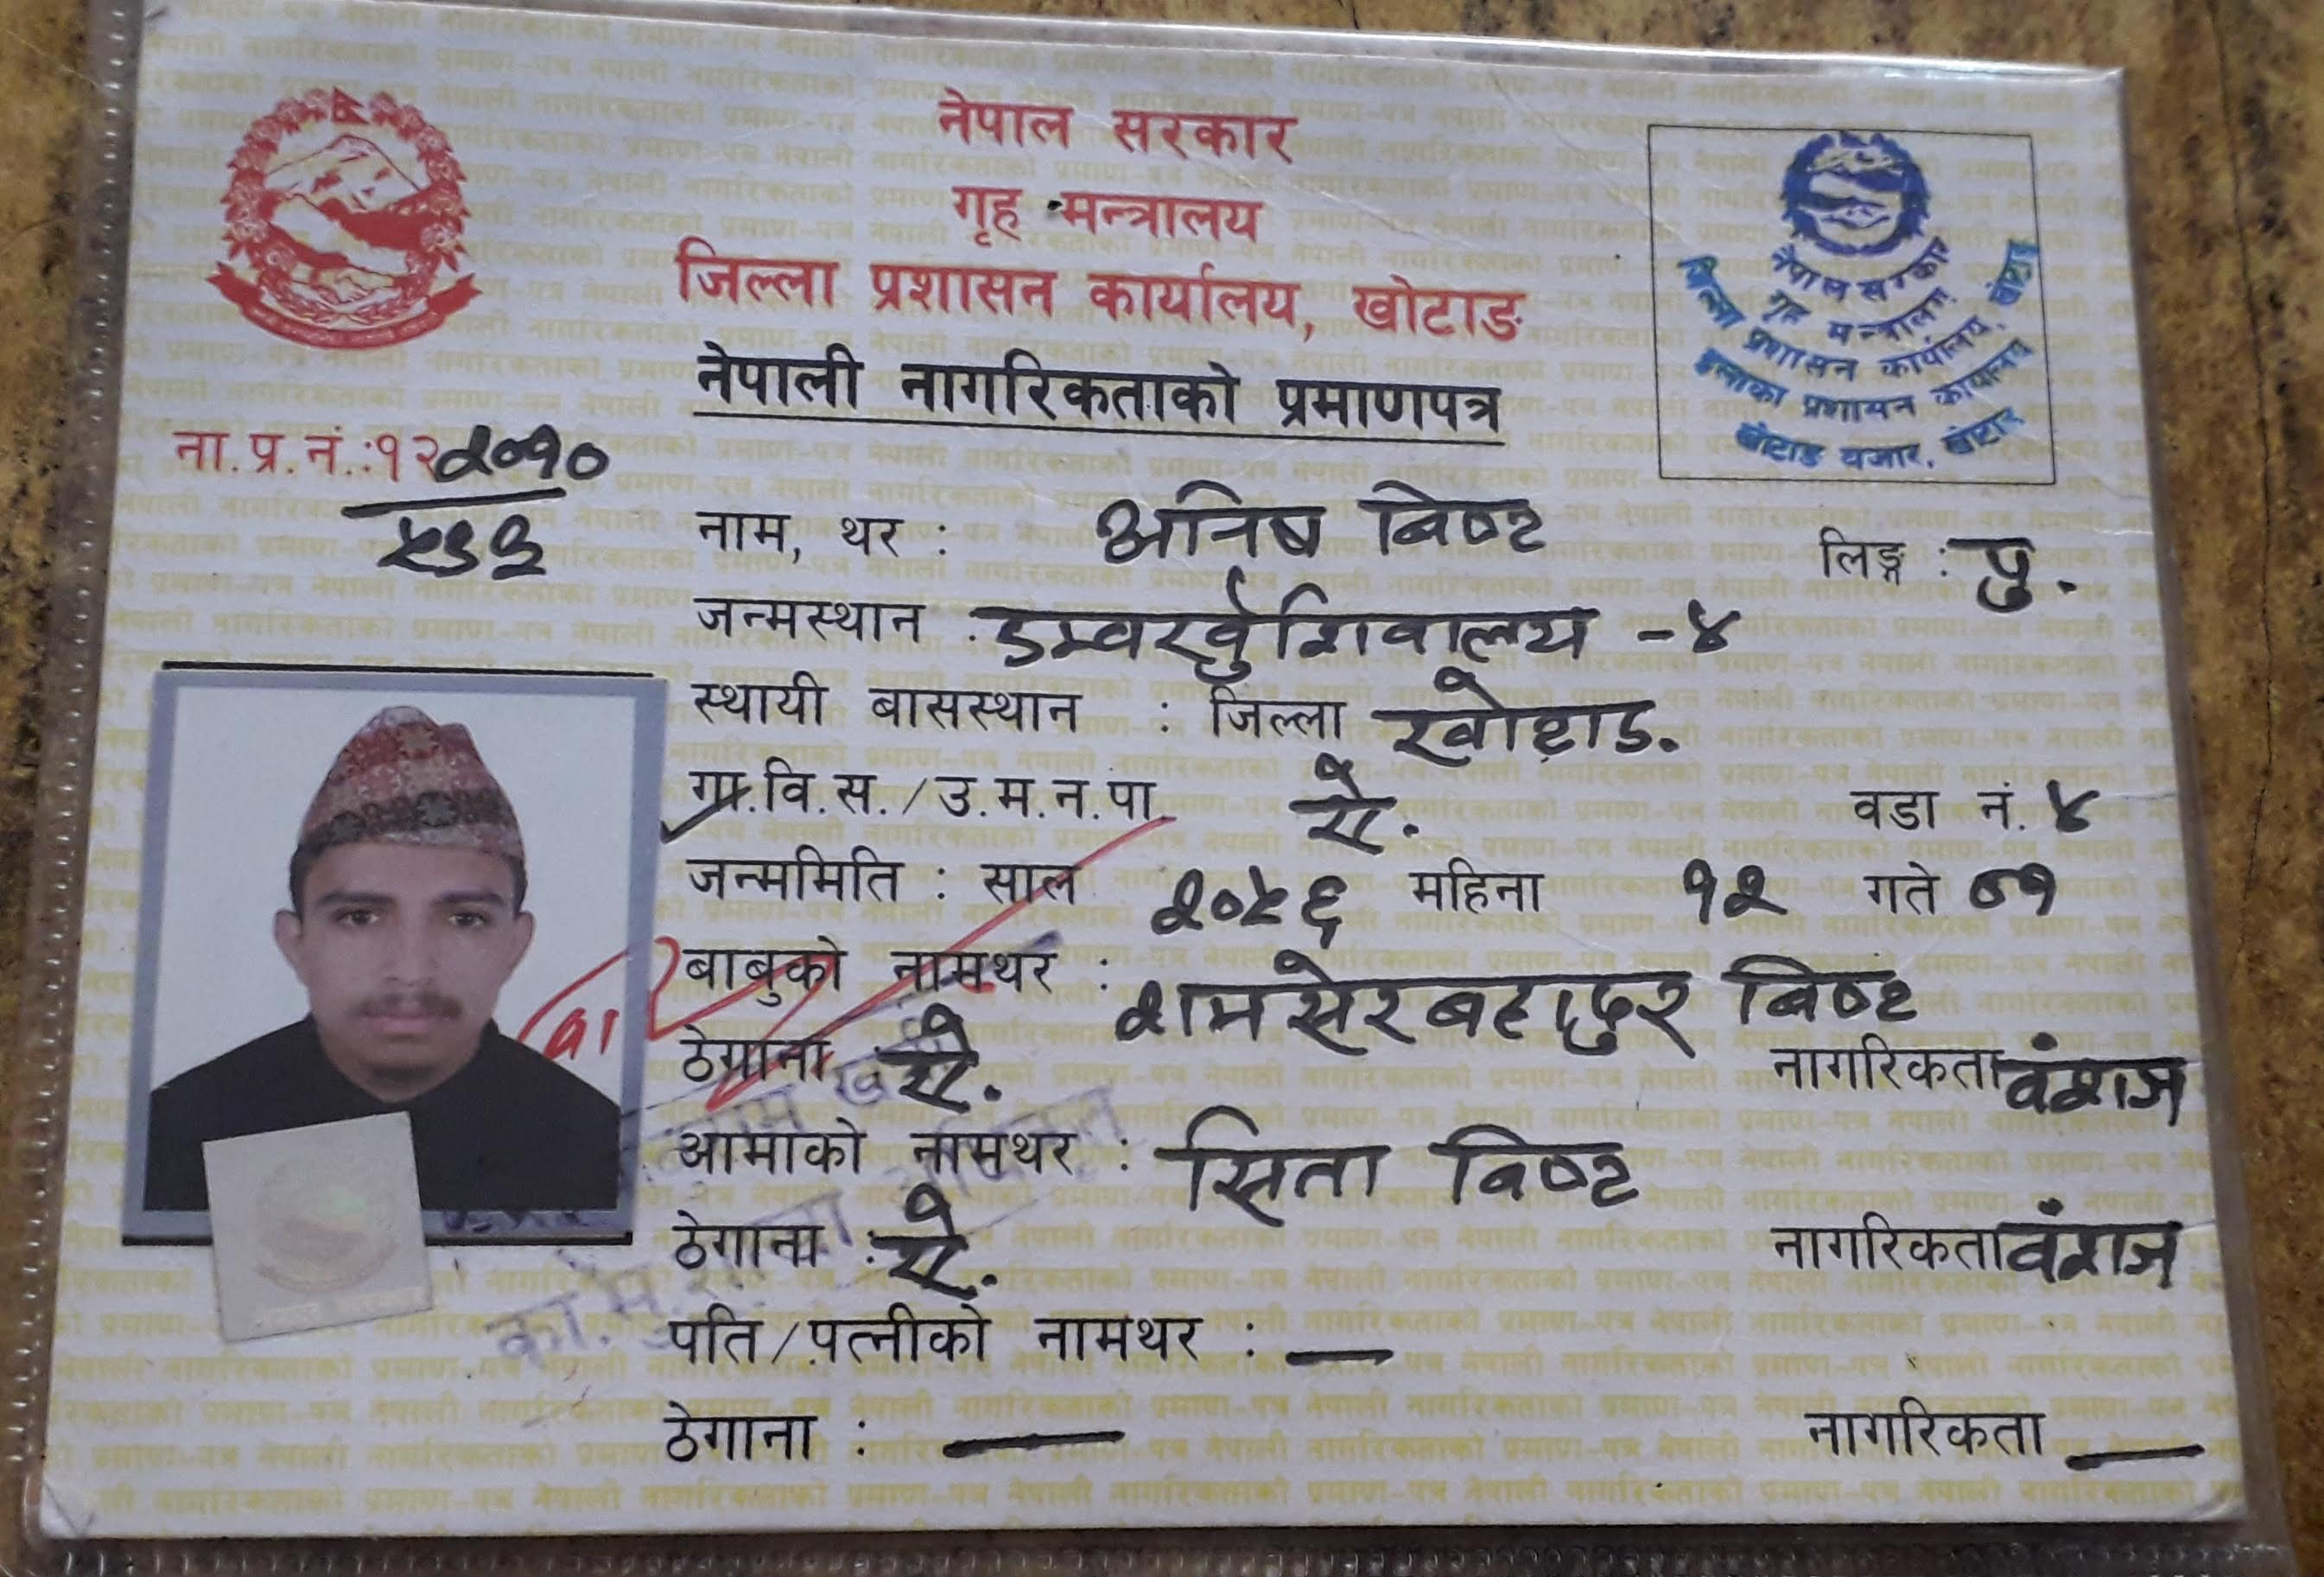 नेपाल सरकार
गृह मन्त्रालय
जिल्ला प्रशासन कार्यालय, खोटाङ
नेपाली नागरिकताको प्रमाणपत्र
नेपाल सरकार
गृह मन्त्रालय
जिल्ला प्रशासन कार्यालय, खोटाङ
इलाका प्रशासन कार्यालय
खोटाङ बजार, खोटाङ
ना.प्र.नं.:१२२०१०
नाम, थर : अनिष बिष्ट लिङ्ग : पु.
जन्मस्थान : डम्वर्खुशिवालय -४
स्थायी बासस्थान : जिल्ला खोटाङ.
गा.वि.स./उ.म.न.पा ऐ. वडा नं. ४
जन्ममिति : साल २०५६ महिना १२ गते ०१
बाबुको नामथर : शमसेरबहादुर बिष्ट
ठेगाना : ऐ. नागरिकता वंशज
आमाको नामथर : सिता बिष्ट
ठेगाना : ऐ. नागरिकता वंशज
पति/पत्नीको नामथर : —
ठेगाना : — नागरिकता —